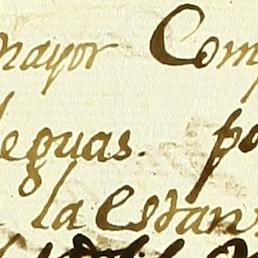 mayor Comp
leguas. po
la Estan